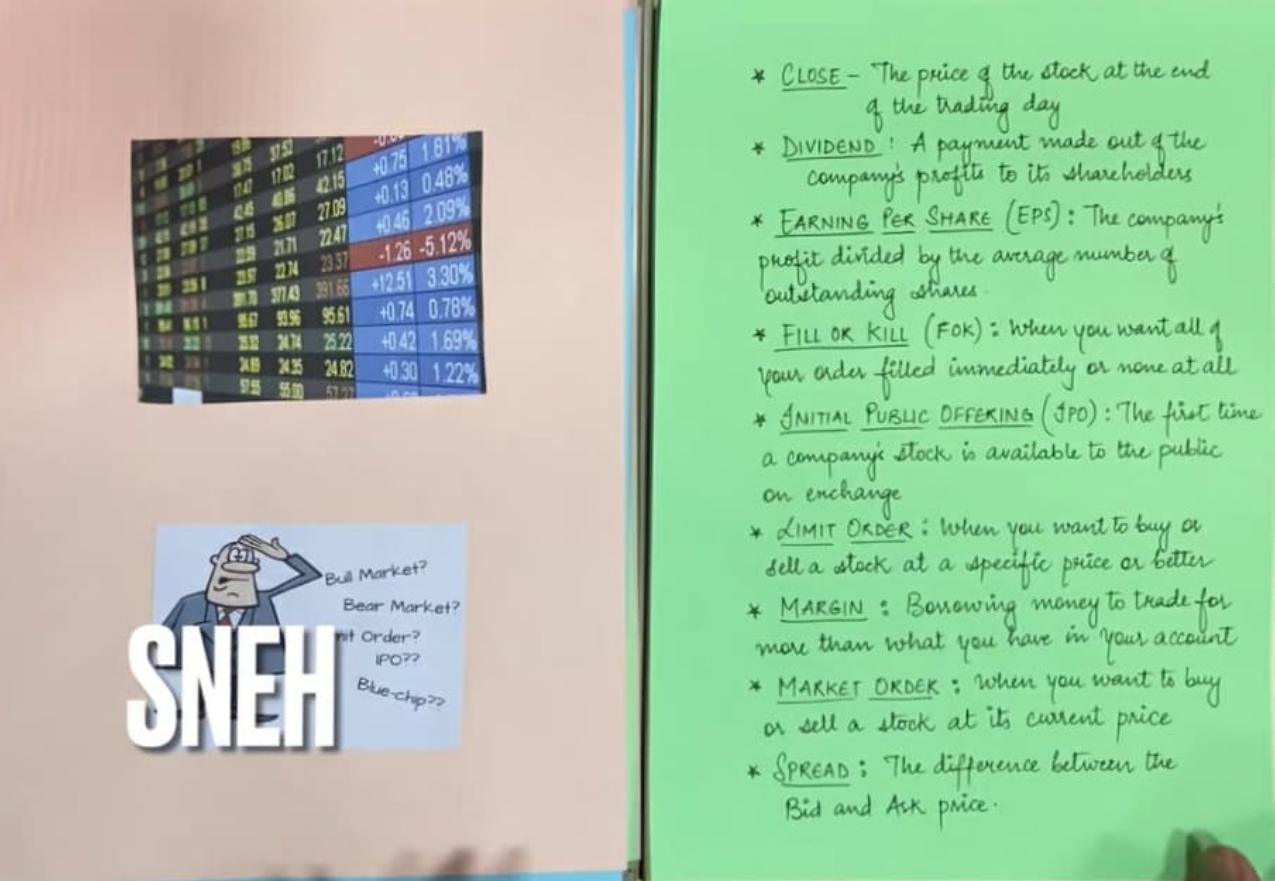 17.12 +0.75 1.81%
42.15 +0.13 0.48%
27.09 +0.46 2.09%
22.47 -1.26 -5.12%
23.37 +12.51 3.30%
391.66 +0.74 0.78%
95.61 +0.42 1.69%
25.22 +0.30 1.22%
24.82
Bull Market?
Bear Market?
Order?
IPO??
Blue-chip??
SNEH
* CLOSE - The price of the stock at the end
of the trading day
* DIVIDEND : A payment made out of the
company's profits to its shareholders
* EARNING PER SHARE (EPS) : The company's
profit divided by the average number of
outstanding shares.
* FILL OR KILL (FOK) : When you want all of
your order filled immediately or none at all
* INITIAL PUBLIC OFFERING (IPO) : The first time
a company's stock is available to the public
on exchange
* LIMIT ORDER : When you want to buy or
sell a stock at a specific price or better
* MARGIN : Borrowing money to trade for
more than what you have in your account
* MARKET ORDER : When you want to buy
or sell a stock at its current price
* SPREAD : The difference between the
Bid and Ask price.